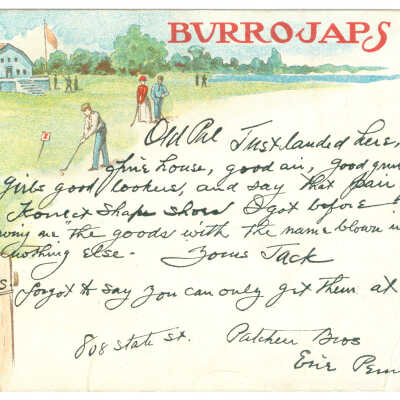 BURROJAPS
Old Pal Just landed here,
fine house, good air, good grub
Girls good lookers, and say that pair
Korrect Shape shoes I got before
me the goods with the name blown in
nothing else - Yours Jack
forgot to say you can only get them at
808 State St. Patchen Bros
Erie Penn